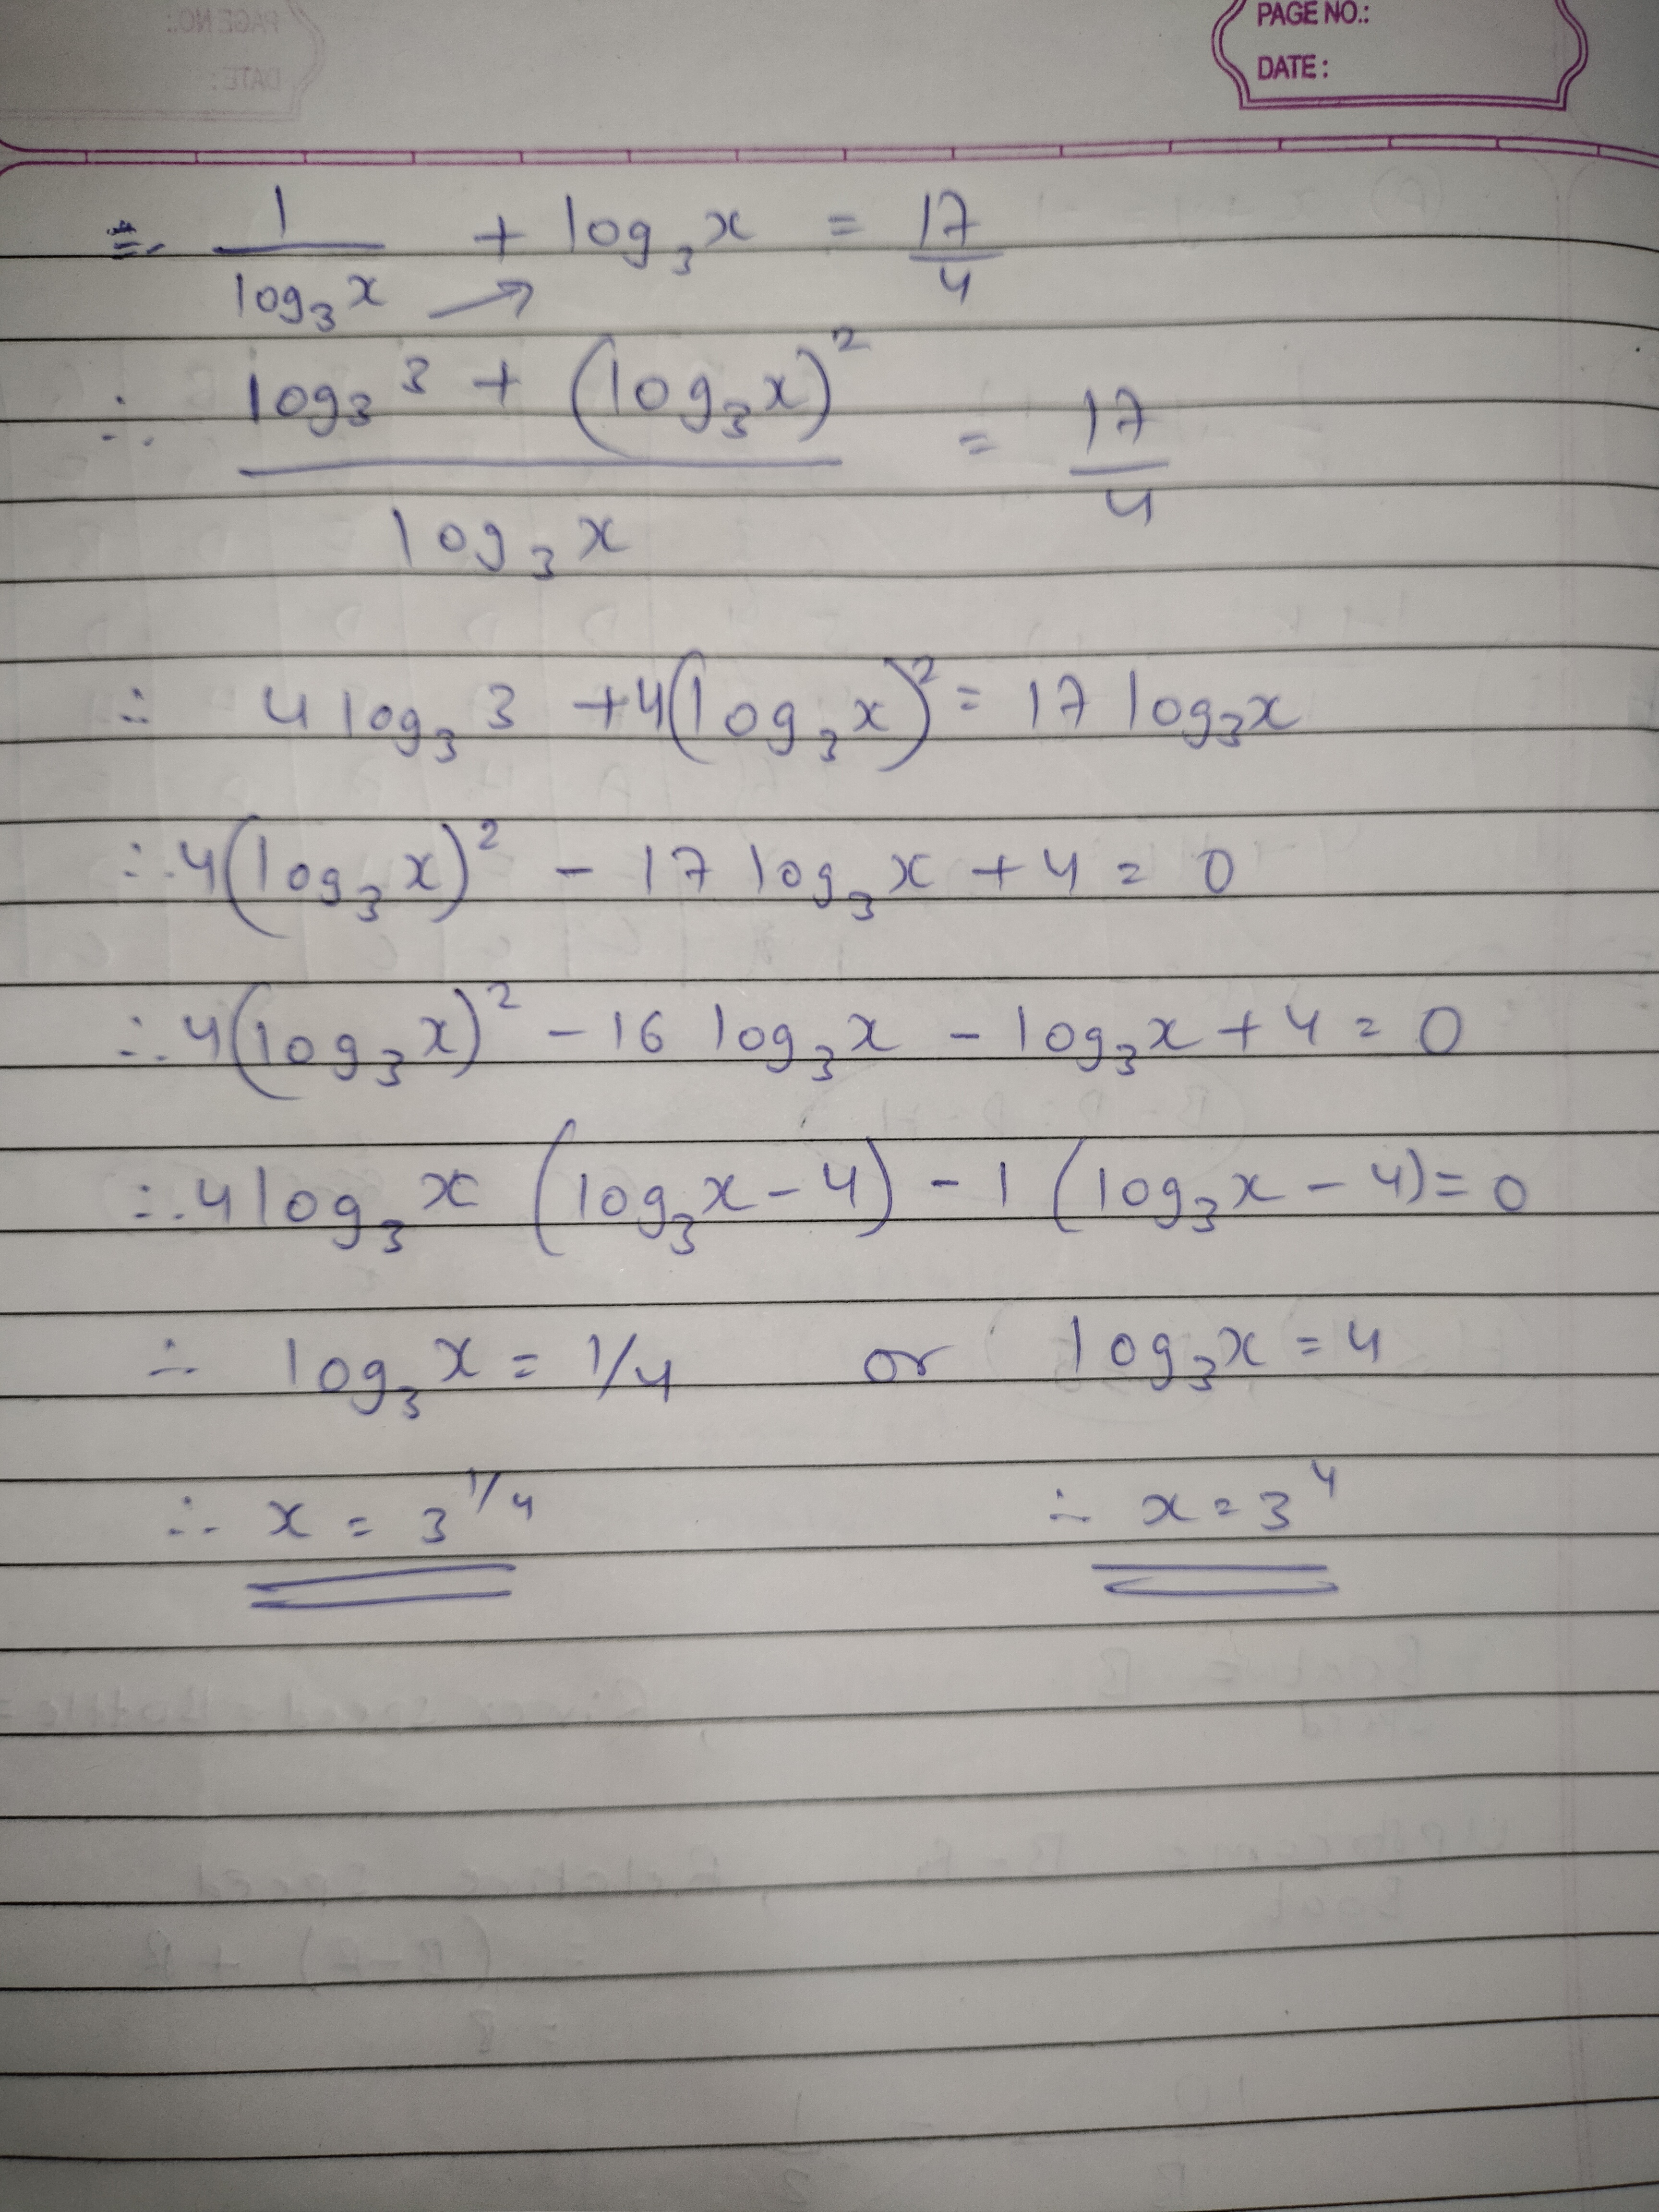 PAGE NO.:
DATE :
∴ 1/log₃x + log₃x = 17/4
∴ (log₃3 + (log₃x)²)/log₃x = 17/4
∴ 4 log₃3 + 4(log₃x)² = 17 log₃x
∴ 4(log₃x)² - 17 log₃x + 4 = 0
∴ 4(log₃x)² - 16 log₃x - log₃x + 4 = 0
∴ 4 log₃x (log₃x - 4) - 1 (log₃x - 4) = 0
∴ log₃x = 1/4 or log₃x = 4
∴ x = 3^1/4 ∴ x = 3⁴